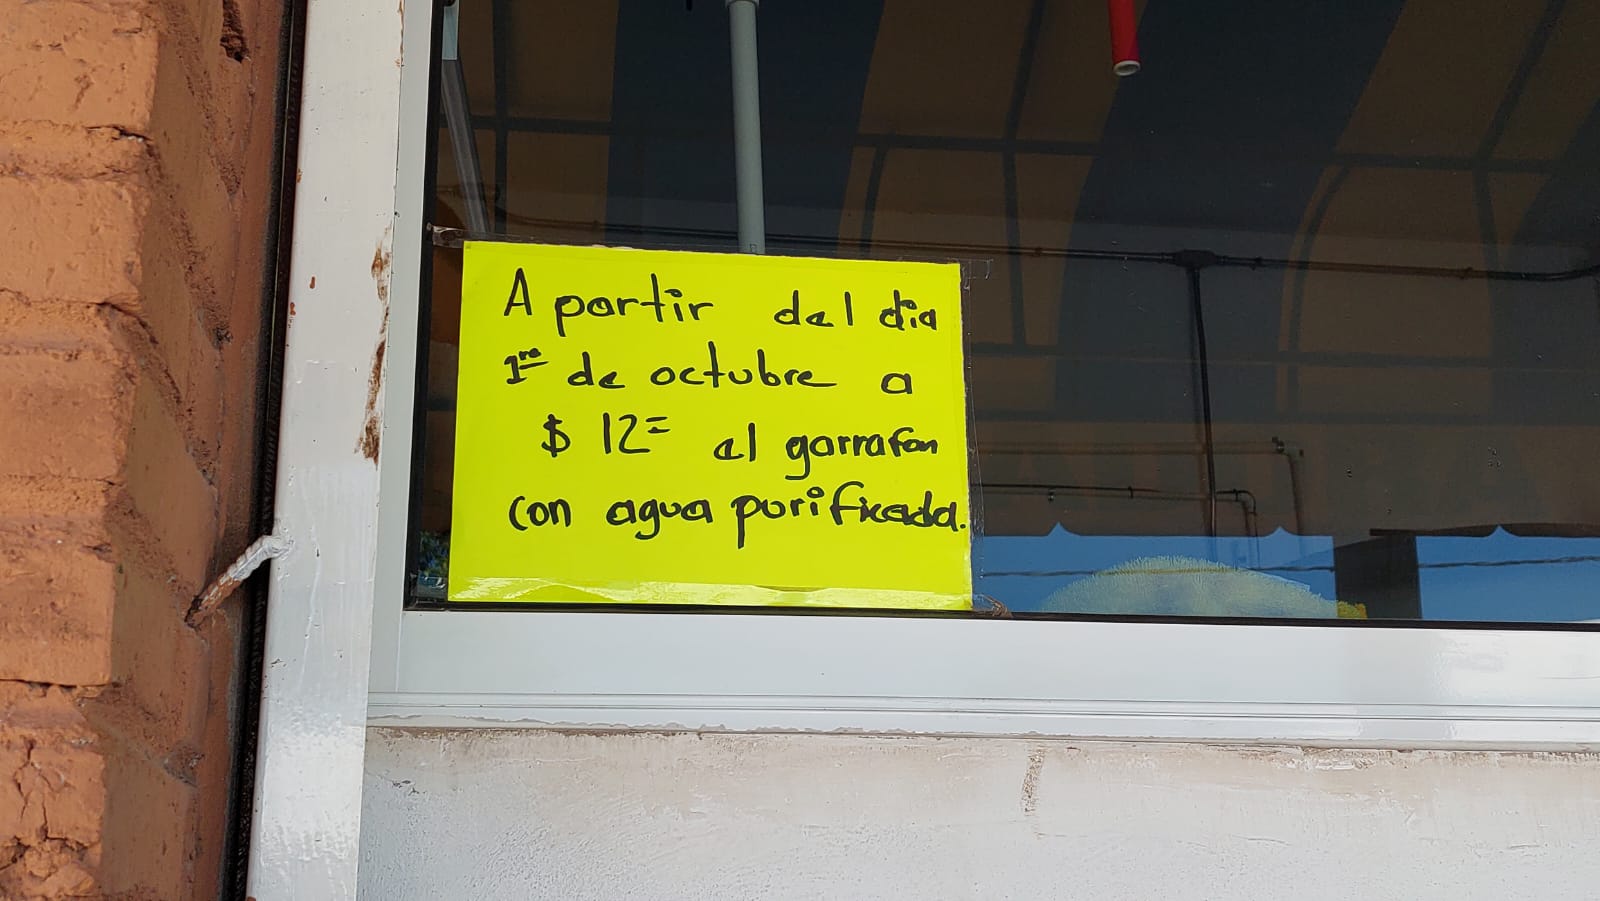 A partir del dia
1ro de octubre a
$ 12= el garrafon
con agua purificada.